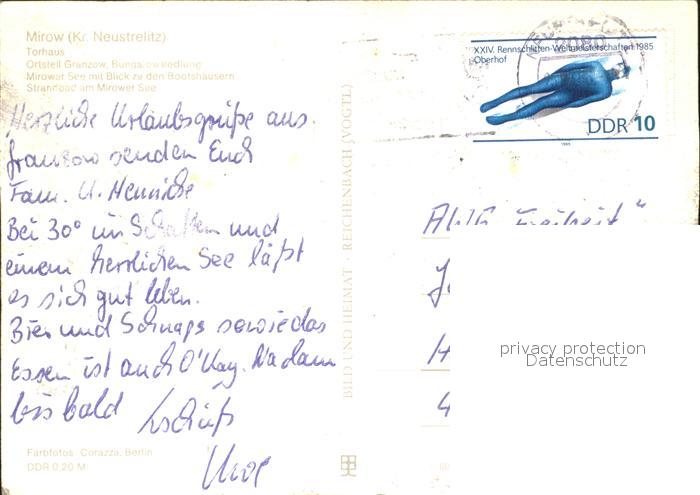 Mirow (Kr. Neustrelitz)
Torhaus
Ortsteil Granzow, Bungalowsiedlung
Mirower See mit Blick zu den Bootshäusern
Strandbad am Mirower See
Herzliche Urlaubsgrüße aus
Granzow senden Euch
Fam. U. Hennicke
Bei 30° im Schatten und
einem herrlichen See läßt
es sich gut leben.
Bier und Schnaps sowie das
Essen ist auch O'Kay. Na dann
bis bald
Farbfotos: Corazza, Berlin
DDR 0,20 M
BILD UND HEIMAT · REICHENBACH (VOGTL)
XXIV. Rennschlitten-Weltmeisterschaften 1985
Oberhof
DDR 10
1985
2080
Freiheit"
H
4
privacy protection
Datenschutz